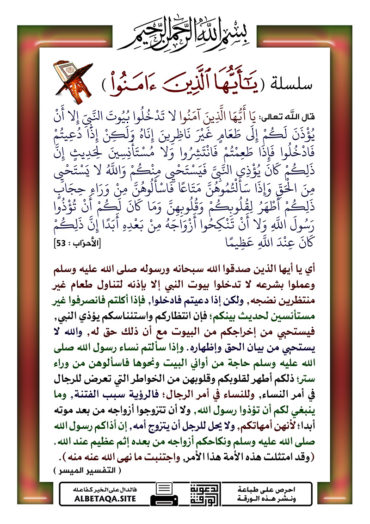 بسم الله الرحمن الرحيم
سلسلة ( يَٰٓأَيُّهَا ٱلَّذِينَ ءَامَنُوا۟ )
قال الله تعالى: يَا أَيُّهَا الَّذِينَ آمَنُوا لَا تَدْخُلُوا بُيُوتَ النَّبِيِّ إِلَّا أَنْ
يُؤْذَنَ لَكُمْ إِلَى طَعَامٍ غَيْرَ نَاظِرِينَ إِنَاهُ وَلَكِنْ إِذَا دُعِيتُمْ
فَادْخُلُوا فَإِذَا طَعِمْتُمْ فَانْتَشِرُوا وَلَا مُسْتَأْنِسِينَ لِحَدِيثٍ إِنَّ
ذَلِكُمْ كَانَ يُؤْذِي النَّبِيَّ فَيَسْتَحْيِي مِنْكُمْ وَاللَّهُ لَا يَسْتَحْيِي
مِنَ الْحَقِّ وَإِذَا سَأَلْتُمُوهُنَّ مَتَاعًا فَاسْأَلُوهُنَّ مِنْ وَرَاءِ حِجَابٍ
ذَلِكُمْ أَطْهَرُ لِقُلُوبِكُمْ وَقُلُوبِهِنَّ وَمَا كَانَ لَكُمْ أَنْ تُؤْذُوا
رَسُولَ اللَّهِ وَلَا أَنْ تَنْكِحُوا أَزْوَاجَهُ مِنْ بَعْدِهِ أَبَدًا إِنَّ ذَلِكُمْ
كَانَ عِنْدَ اللَّهِ عَظِيمًا [الأحزاب : 53]
أي يا أيها الذين صدقوا الله سبحانه ورسوله صلى الله عليه وسلم
وعملوا بشرعه لا تدخلوا بيوت النبي إلا بإذنه لتناول طعام غير
منتظرين نضجه, ولكن إذا دعيتم فادخلوا, فإذا أكلتم فانصرفوا غير
مستأنسين لحديث بينكم؛ فإن انتظاركم واستئناسكم يؤذي النبي,
فيستحيي من إخراجكم من البيوت مع أن ذلك حق له, والله لا
يستحيي من بيان الحق وإظهاره. وإذا سألتم نساء رسول الله صلى
الله عليه وسلم حاجة من أواني البيت ونحوها فاسألوهن من وراء
ستر؛ ذلكم أطهر لقلوبكم وقلوبهن من الخواطر التي تعرض للرجال
في أمر النساء, وللنساء في أمر الرجال؛ فالرؤية سبب الفتنة, وما
ينبغي لكم أن تؤذوا رسول الله, ولا أن تتزوجوا أزواجه من بعد موته
أبدا؛ لأنهن أمهاتكم, ولا يحل للرجل أن يتزوج أمه, إن أذاكم رسول الله
صلى الله عليه وسلم ونكاحكم أزواجه من بعده إثم عظيم عند الله.
(وقد امتثلت هذه الأمة هذا الأمر, واجتنبت ما نهى الله عنه منه).
( التفسير الميسر )
احرص على طباعة
ونشر هذه الورقة
الدعوية
الورقة
فالدال على الخير كفاعله
ALBETAQA.SITE